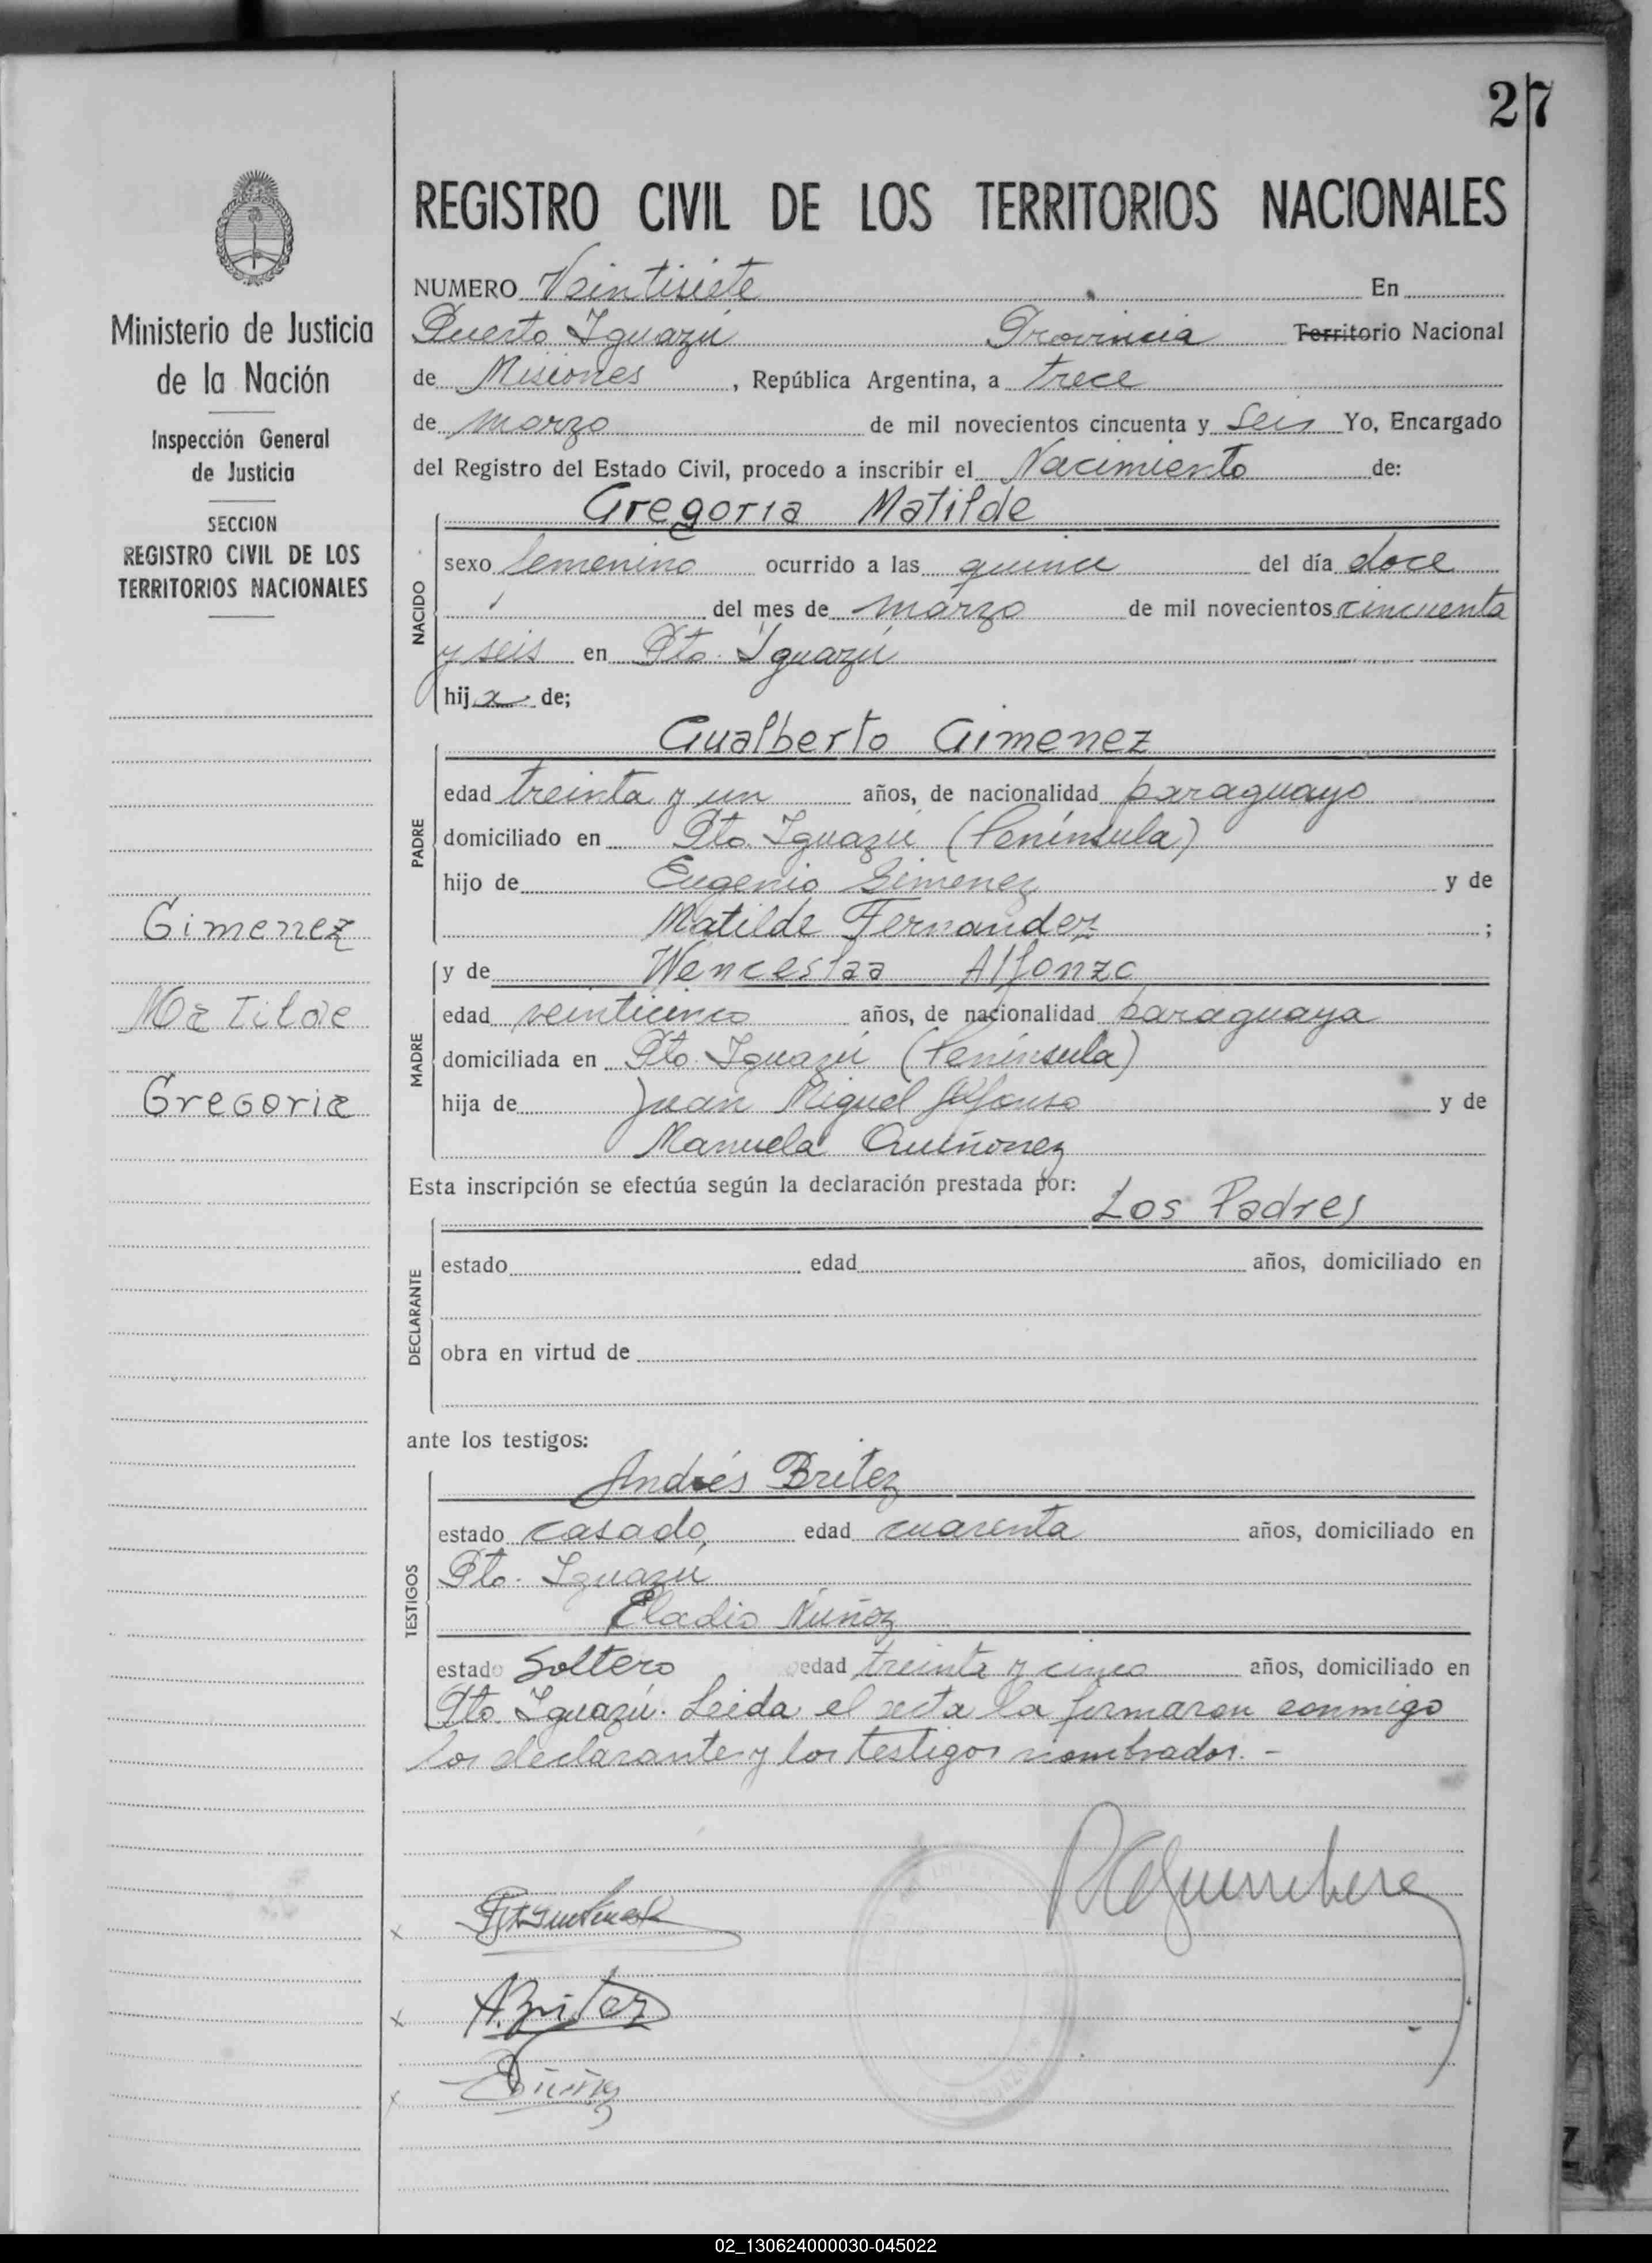 27
REGISTRO CIVIL DE LOS TERRITORIOS NACIONALES
Ministerio de Justicia
de la Nación
Inspección General
de Justicia
SECCION
REGISTRO CIVIL DE LOS
TERRITORIOS NACIONALES
Gimenez
Matilde
Gregoria
NUMERO Veintisiete En
Puerto Iguazú Provincia Territorio Nacional
de Misiones, República Argentina, a trece
de marzo de mil novecientos cincuenta y seis Yo, Encargado
del Registro del Estado Civil, procedo a inscribir el Nacimiento de:
Gregoria Matilde
NACIDO
sexo femenino ocurrido a las quince del día doce
del mes de marzo de mil novecientos cincuenta
y seis en Pto. Iguazú
hija de;
Gualberto Gimenez
PADRE
edad treinta y un años, de nacionalidad paraguayo
domiciliado en Pto. Iguazú (Península)
hijo de Eugenio Gimenez y de
Matilde Fernandez ;
y de Wenceslaa Alfonzo
MADRE
edad veinticinco años, de nacionalidad paraguaya
domiciliada en Pto. Iguazú (Península)
hija de Juan Miguel Alfonso y de
Manuela Quiñonez
Esta inscripción se efectúa según la declaración prestada por:
Los Padres
DECLARANTE
estado edad años, domiciliado en
obra en virtud de
ante los testigos:
Andrés Britez
TESTIGOS
estado casado, edad cuarenta años, domiciliado en
Pto. Iguazú
Eladio Nuñez
estado Soltero edad treinta y cinco años, domiciliado en
Pto. Iguazú. Leida el acta la firmaron conmigo
los declarantes y los testigos nombrados. -
x
x A. Britez
x
02_130624000030-045022